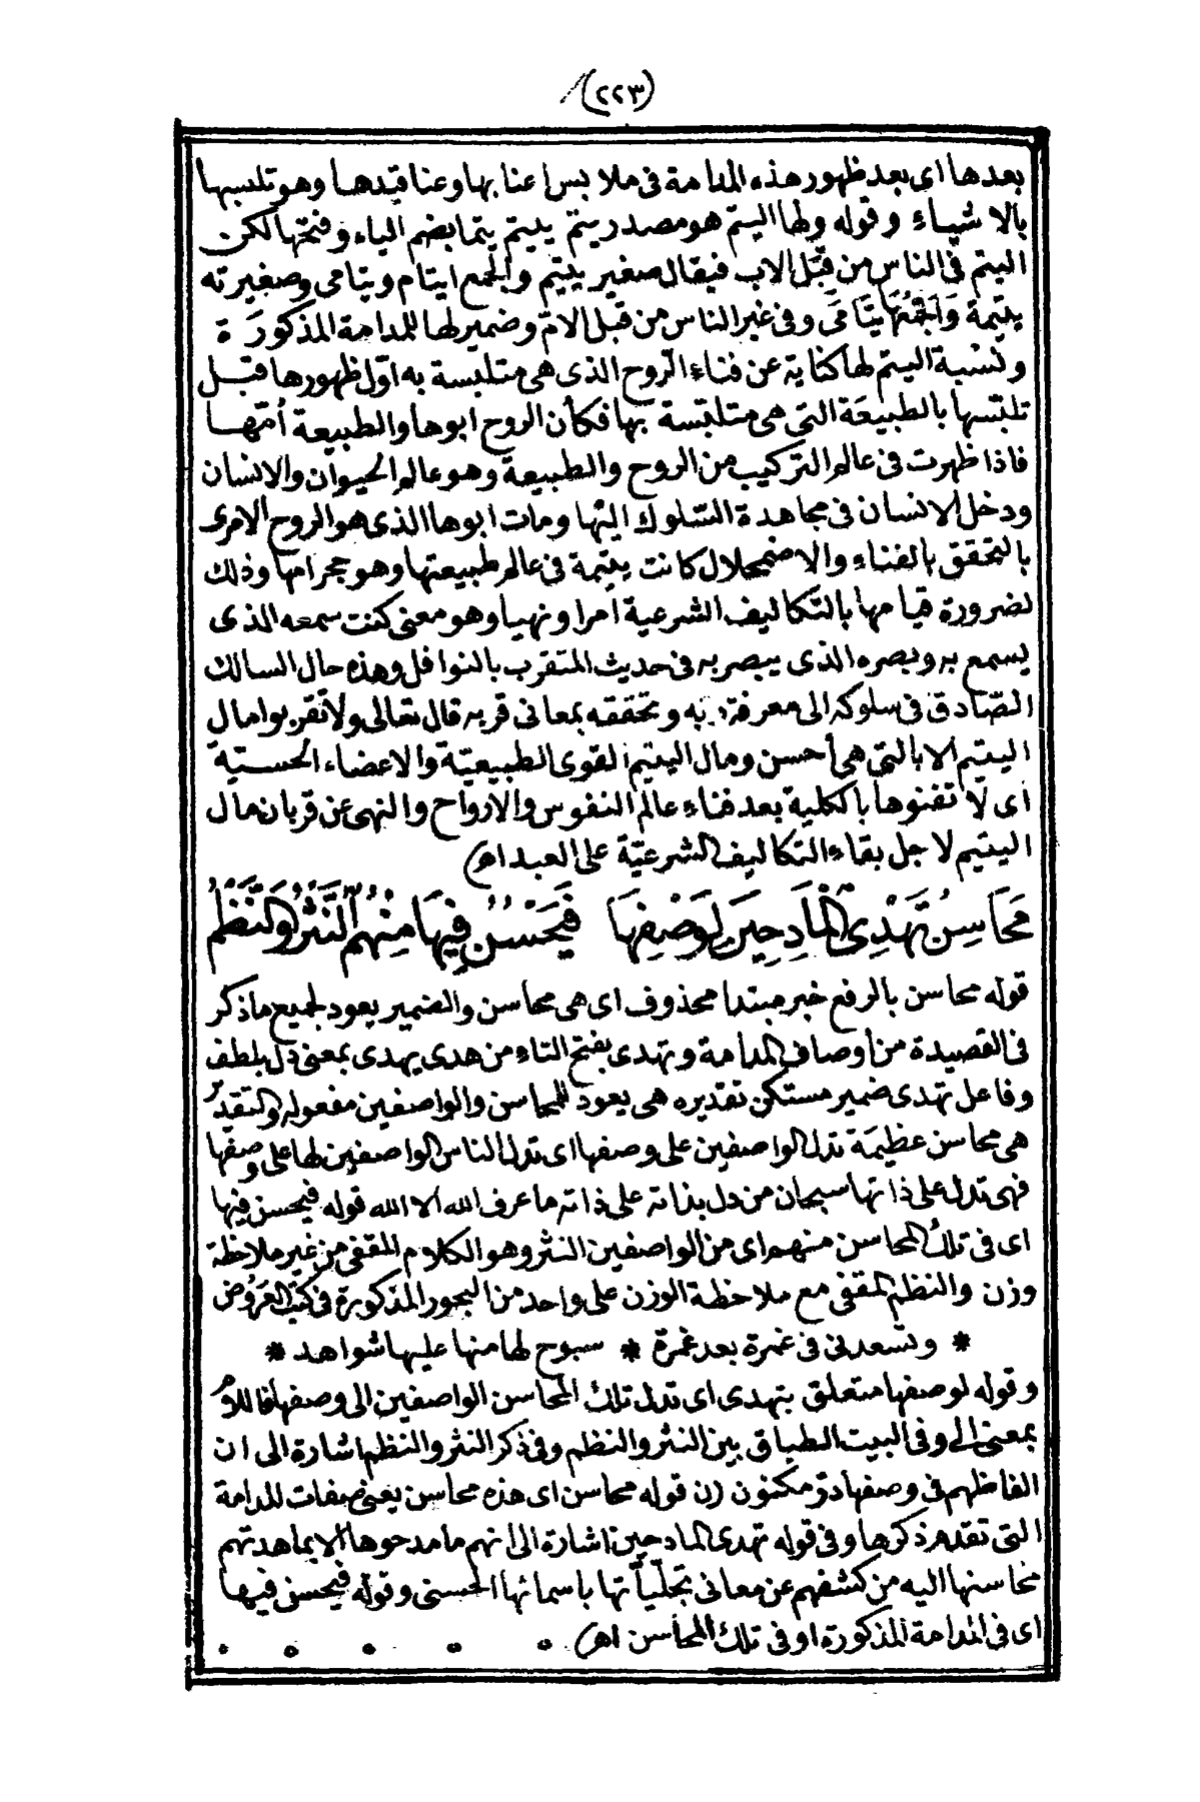 (٢٢٣)
بعدها اى بعد ظهور هذه المدامة فى ملابس اعنابها وعناقيدها وهو تلبسها
بالاشياء وقوله ولها اليتم هو مصدر يتم ييتم يتما بضم الياء وفتحها لكن
اليتم فى الناس من قبل الاب فيقال صغير يتيم والجمع ايتام ويتامى وصغيرته
يتيمة وَجَمْعُهَا يَتَامَى وفى غير الناس من قبل الامّ وضمير لها للمدامة المذكورَة
ونسْبة اليتم لها كناية عن فناء الرّوح الذى هى متلبسة به اوّل ظهورها قبل
تلبّسها بالطبيعَة التى هى متلبّسة بها فكأن الروح ابوها والطبيعة اُمّها
فاذا ظهرت فى عالم التركيب من الروح والطبيعة وهو عالم الحيوان والانسان
ودخل الانسان فى مجاهدة السّلوك اليها ومات ابوها الذى هو الروح الامرى
بالتحقق بالفناء والاضمحلال كانت يتيمة فى عالم طبيعتها وهو حجر امها وذلك
لضرورة قيامها بالتكاليف الشرعية امرا ونهيا وهو معنى كنت سمعه الذى
يسمع به وبصره الذى يبصر به فى حديث المتقرب بالنوافل وهذه حال السالك
الصّادق فى سلوكه الى معرفة ربه وتحققه بمعانى قربه قال تعالى ولا تقربوا مال
اليتيم الا بالتى هى أحسن ومال اليتيم القوى الطبيعيّة والاعضاء الحسّيّة
اى لا تفنوها بالكلية بعد فناء عالم النفوس والارواح والنهى عن قربان مال
اليتيم لاجل بقاء التكاليف الشرعيّة على العبد اهـ)
مَحَاسِنُ تَهْدِى الْمَادِحِينَ لِوَصْفِهَا فَيَحْسُنُ فِيهَا مِنْهُمُ النَّثْرُ وَالنَّظْمُ
قوله محاسن بالرفع خبر مبتدا محذوف اى هى محاسن والضمير يعود لجميع ما ذكر
فى القصيدة من أوصاف المدامة وتهدى بفتح التاء من هدى يهدى بمعنى دل بلطف
وفاعل تهدى ضمير مستكن تقديره هى يعود للمحاسن والواصفين مفعوله والتقدير
هى محاسن عظيمَة تدل الواصفين على وصفها اى تدل الناس الواصفين لها على وصفها
فهى تدل على ذاتها سبحان من دل بذاته على ذاته ما عرف الله الا الله قوله فيحسن فيها
اى فى تلك المحاسن منهم اى من الواصفين النثر وهو الكلام المقفى من غير ملاحظة
وزن والنظم المقفى مع ملاحظة الوزن على واحد من البحور المذكورة فى كتب العَرُوض
* وتسعدنى فى غمرة بعد غمرة * سبوح لها منها عليها شواهد *
وقوله لوصفها متعلق بتهدى اى تدل تلك المحاسن الواصفين الى وصفها فاللام
بمعنى الى وفى البيت الطباق بين النثر والنظم وفى ذكر النثر والنظم اشارة الى ان
الفاظهم فى وصفها در مكنون (ن قوله محاسن اى هذه محاسن يعنى صفات للمدامة
التى تقدم ذكرها وفى قوله تهدى المادحين اشارة الى انهم ما مدحوها الا بما هدتهم
محاسنها اليه من كشفهم عن معانى تجلّياتها باسمائها الحسنى وقوله فيحسن فيها
اى فى المدامة المذكورة او فى تلك المحاسن اهـ)